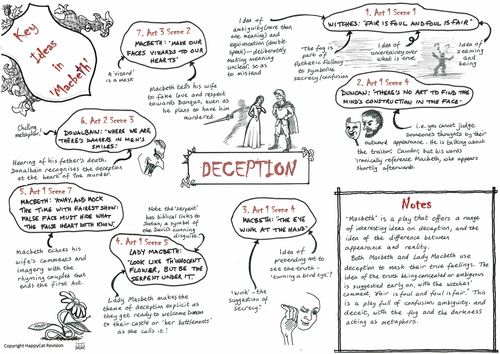 Key
Ideas
in
'Macbeth'
7. Act 3 Scene 2
MACBETH: 'MAKE OUR
FACES VIZARDS TO OUR
HEARTS'
A 'vizard'
is a mask
Macbeth tells his wife
to fake love and respect
towards Banquo, even as
he plans to have him
murdered.
Idea of
ambiguity (more than
one meaning) and
equivocation (double
speak) – deliberately
making meaning
unclear, so as
to mislead
1. Act 1 Scene 1
WITCHES: 'FAIR IS FOUL AND FOUL IS FAIR'
The fog is
part of
Pathetic Fallacy
to symbolise
secrecy/confusion
Idea of
uncertainty over
what is true.
Idea of
seeming
and
being
2. Act 1 Scene 4
DUNCAN: 'THERE'S NO ART TO FIND THE
MIND'S CONSTRUCTION IN THE FACE'
i.e. you cannot judge
someone's thoughts by their
outward appearance. He is talking about
the traitor, Cawdor, but his words
ironically reference Macbeth, who appears
shortly afterwards.
6. Act 2 Scene 3
DONALBAIN: 'WHERE WE ARE
THERE'S DAGGERS IN MEN'S
SMILES'
Chilling
metaphor.
Hearing of his father's death,
Donalbain recognises the deception
at the heart of the murder.
DECEPTION
5. Act 1 Scene 7
MACBETH: 'AWAY, AND MOCK
THE TIME WITH FAIREST SHOW:
FALSE FACE MUST HIDE WHAT
THE FALSE HEART DOTH KNOW.'
Macbeth echoes his
wife's comments and
imagery with the
rhyming couplet that
ends the first Act.
Note the 'serpent'
has biblical links to
Satan; a symbol of
the Devil's cunning
disguise.
4. Act 1 Scene 5
LADY MACBETH:
'LOOK LIKE TH'INNOCENT
FLOWER, BUT BE THE
SERPENT UNDER'T.'
Lady Macbeth makes the
theme of deception explicit as
they get ready to welcome Duncan
to their castle or 'her battlements'
as she calls it!
3. Act 1 Scene 4
MACBETH: 'THE EYE
WINK AT THE HAND'
Idea of
pretending not to
see the truth –
'turning a blind eye'?
'Wink' – the
suggestion of
secrecy?
Notes
'Macbeth' is a play that offers a range
of interesting ideas on deception, and the
idea of the difference between
appearance and reality.
Both Macbeth and Lady Macbeth use
deception to mask their true feelings. The
idea of the truth being concealed or ambiguous
is suggested early on, with the witches'
comment, 'Fair is foul and foul is fair.' This
is a play full of confusion, ambiguity, and
deceit, with the fog and the darkness
acting as metaphors.
Copyright HappyCat Revision